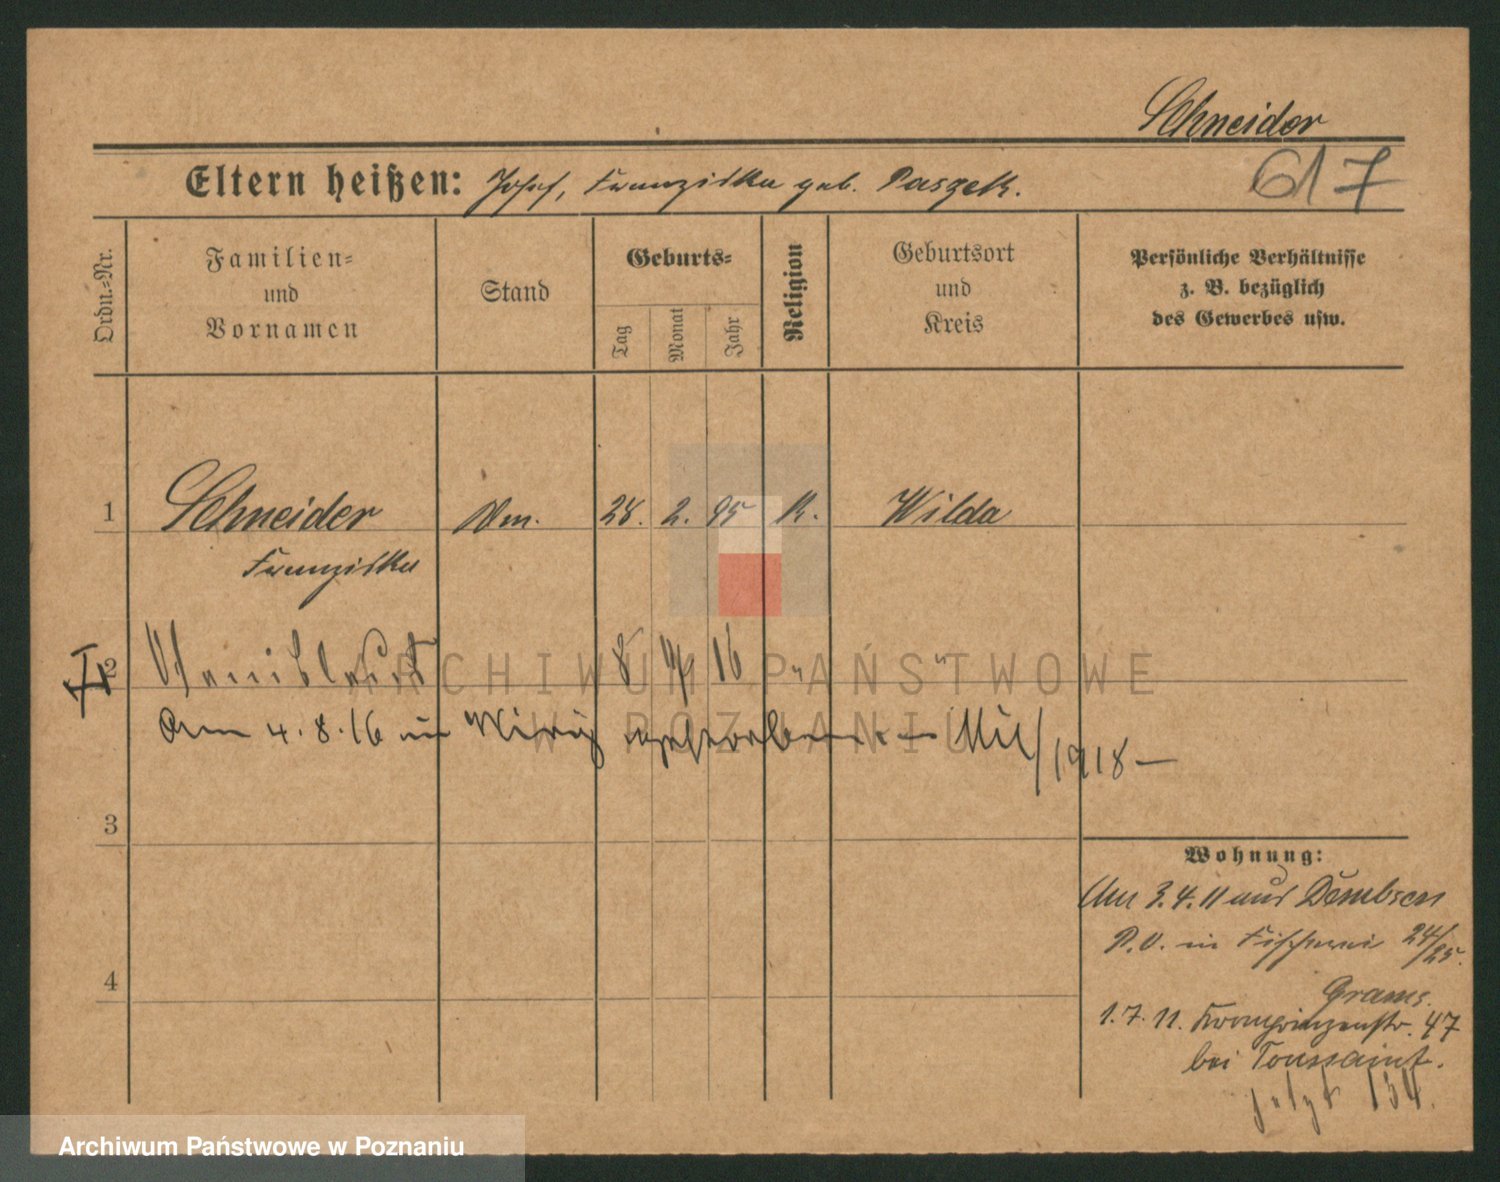 Schneider
617
Eltern heißen: Josef, Franziska geb. Paszek.
Ordn.-Nr.
Familien-
und
Vornamen
Stand
Geburts-
Tag
Monat
Jahr
Religion
Geburtsort
und
Kreis
Persönliche Verhältnisse
z. B. bezüglich
des Gewerbes usw.
1 Schneider Dm. 28. 2. 95 K. Wilda
Franziska
2 8 4 16 " "
Am 4.8.16 in gestorben 1918 —
3
4
Wohnung:
Am 3.4.11 aus Dembsen
P.O. in Fischerei 24/25.
Grams.
1.7.11. Kronprinzenstr. 47
bei Toussaint.
jetzt 134.
ARCHIWUM PAŃSTWOWE
W POZNANIU
Archiwum Państwowe w Poznaniu